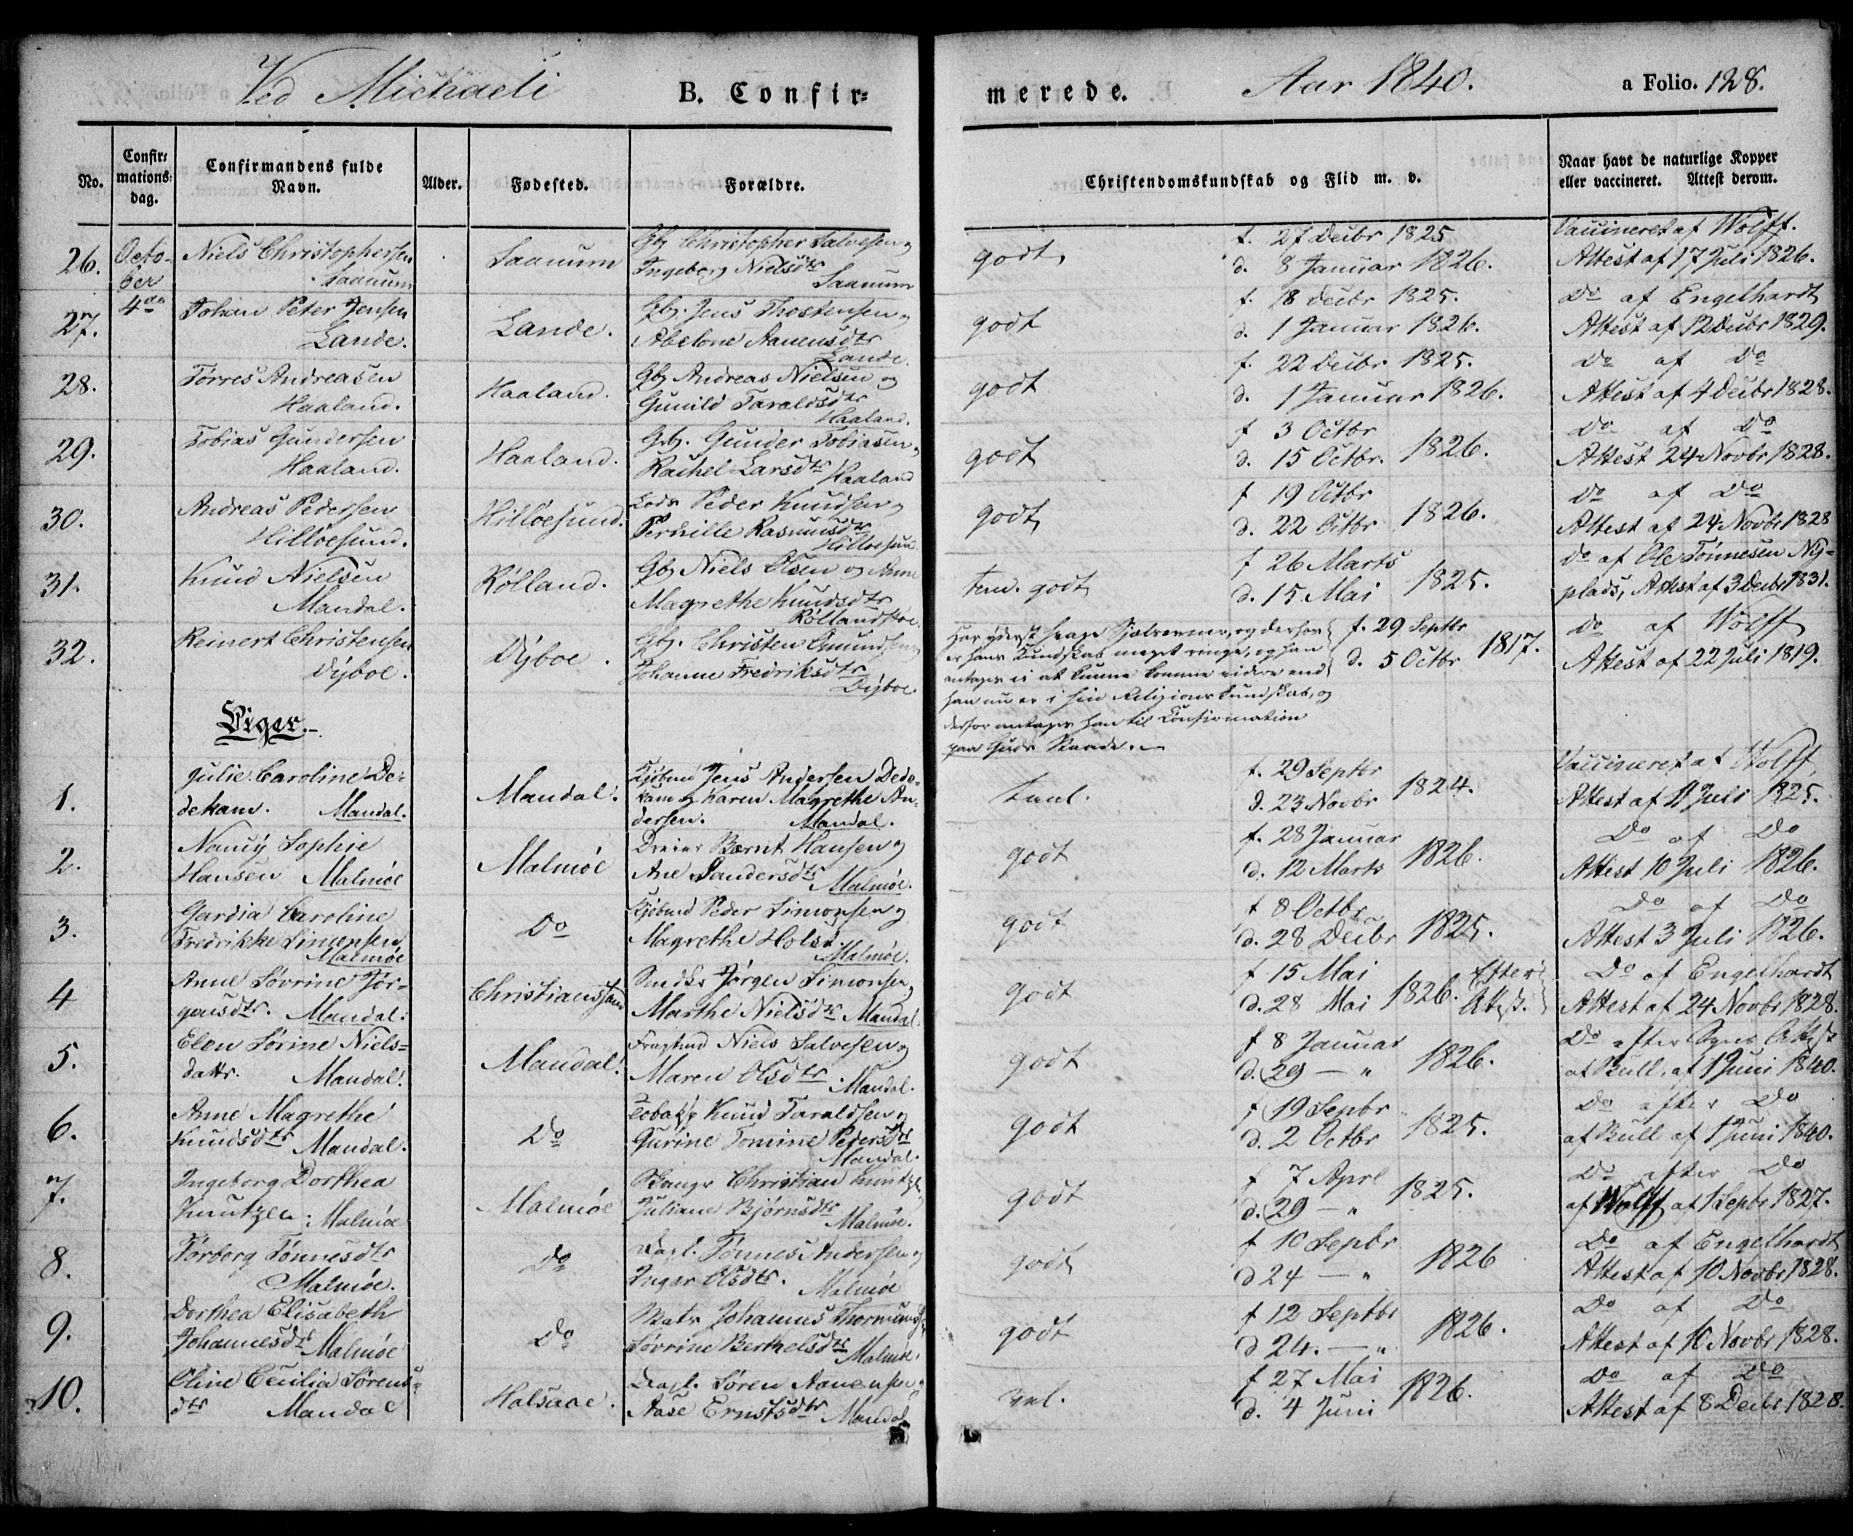 Ved Michaeli B. Confir=
merede. Aar 1840. a Folio. 128.
No.
Confir=
mations=
dag.
Confirmandens fulde
Navn.
Alder.
Fødested.
Forældre.
Christendomskundskab og Flid m. v.
Naar havt de naturlige Kopper
eller vaccineret. Attest derom.
26. Octo-
ber
4de
Niels Christophersen
Saanum
Saanum
Gbr Christopher Salvesen og
Ingeborg Nielsdtr
Saanum
godt
f. 27 Decbr 1825
d. 8 Januar 1826.
Vaccineret af Wolff.
Attest af 17 Juli 1826.
27.
Johan Peter Jensen
Lande.
Lande.
Gbr. Jens Thostensen og
Abelone Aanensdtr
Lande.
godt
f. 18 Decbr 1825.
d. 1 Januar 1826.
Do af Engelhardt
Attest af 12 Decbr 1829.
28.
Tørres Andreasen
Haaland.
Haaland.
Gbr Andreas Nielsen og
Gunild Taraldsdtr
Haaland.
godt
f. 22 Decbr 1825.
d. 1 Januar 1826.
Do af Do
Attest af 4 Decbr 1828.
29.
Tobias Gundersen
Haaland.
Haaland.
Gbr. Gunder Tobiasen
Rachel Larsdtr Haaland
godt
f 3 Octbr
d. 15 Octbr. 1826.
Do af Do
Attest 24 Novbr 1828.
30.
Andreas Pedersen
Hilløesund.
Hilløesund.
Lods Peder Knudsen og
Pernille Rasmusdtr
Hilløesund
godt
f 19 Octbr
d. 22 Octbr 1826.
Do af Do
Attest af 24 Novbr 1828
31.
Knud Nielsen
Mandal.
Rølland.
Gbr Niels Olsen og Anne
Magrethe Knudsdtr
godt
f 26 Marts
d. 15 Mai 1825.
Do af Ole Tönnesen Ny-
plads, Attest af 3 Decbr 1831.
32.
Reinert Christensen
Dÿboe.
Dÿboe.
Gbr. Christen Gmundsen
Johanne Fredriksdtr
Dÿboe
Har yderst svage Sjælsevner, og derfor
er hans Kundskab meget ringe, og han
antages ei at kunne komme videre end
han nu er i sin Religionskundskab, og
derfor antages han til Confirmation
paa Guds Naade.
f. 29 Septbr
d. 5 Octbr 1817.
Do af Wolff
Attest af 22 Juli 1819.
Piger.
1.
Julie Caroline De-
dekam. Mandal.
Mandal.
Kjøbmd Jens Andersen Dede-
kam og Karen Magrethe An-
dersen. Mandal.
f. 29 Septbr
d. 23 Novbr 1824.
Vaccineret af Wolff
Attest af 11 Juli 1825.
2.
Nancÿ Sophie
Hansen Malmöe
Malmöe
Dreier Bernt Hansen og
Ane Sandersdtr Malmöe.
godt
f. 28 Januar
d. 12 Marts 1826.
Do af Do
Attest 10 Juli 1826.
3.
Gardia Caroline
Fredrikke Simonsen
Malmöe
Do
Kjøbmd Peder Simonsen og
Magrethe Holst
Malmöe.
godt
f 8 Octbr
d. 28 Decbr 1825.
Do af Do
Attest 3 Juli 1826.
4
Anne Sövrine Jör-
gensdtr. Mandal.
Christianssand
Jörgen Simonsen
Marthe Nielsdtr Mandal.
godt
f 15 Mai
d. 28 Mai 1826. Efter
Attest.
Do af Engelhardt
Attest af 24 Novbr 1828.
5.
Elen Sörine Niels-
dattr. Mandal.
Mandal.
Niels Salvesen og
Maren Olsdtr Mandal.
godt
f 8 Januar
d. 29 — " 1826.
Do efter Attest
af Bull, af 1 Juni 1840.
6.
Anne Magrethe
Knudsdtr Mandal.
Do
Knud Taraldsen og
Gurine Tomine Pedersdtr
Mandal.
godt
f 19 Sepbr
d. 2 Octbr 1825.
Do efter Do
af Bull af 1 Juni 1840.
7.
Ingeborg Dorthea
Knutzen. Malmöe
Malmöe
Christian Knutzen
Juliane Bjørnsdtr
Malmöe.
godt
f 7 Aprl
d. 29 — " 1825.
Do efter Do
af Wolff af 1 Sepbr 1827.
8.
Torborg Tönnesdtr
Malmöe.
Do
Dagl. Tønnes Andersen og
Inger Olsdtr.
Malmöe
godt
f 10 Sepbr
d 24 — " 1826
Do af Engelhardt
Attest af 10 Novbr 1828.
9.
Dorthea Elisabeth
Johannesdtr Malmöe
Do
Matr Johannes Thormundsen
Sövrine Berthelsdtr
Malmöe.
godt
f 12 Septbr
d 24. — " 1826.
Do af Do
Attest af 10 Novbr 1828.
10.
Oline Cecilia Sörens-
dtr Mandal
Halsaae.
Dagl. Sören Aanensen
Aase Ernstsdtr Mandal
vel.
f 27 Mai
d. 4 Juni 1826.
Do af Do
Attest af 8 Decbr 1828.